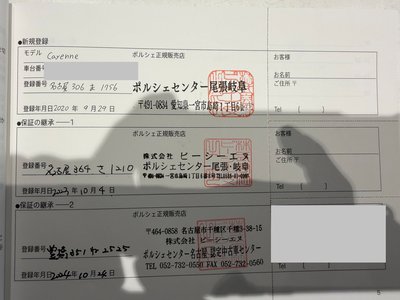 ●新規登録
モデル Cayenne
ポルシェ正規販売店
お客様
車台番号
登録番号 名古屋 306 ま 1756
ポルシェセンター尾張・岐阜
〒491-0834 愛知県一宮市島崎1丁目6番
お名前
ご住所 〒
登録年月日 2020年9月29日
Tel ( )
●保証の継承——1
ポルシェ正規販売店
お客様
株式会社 ピーシーエヌ
ポルシェセンター尾張・岐阜
登録番号 名古屋 364 さ 1210
お名前
ご住所 〒
登録年月日 2023年10月4日
Tel ( )
●保証の継承——2
ポルシェ正規販売店
お客様
〒464-0858 名古屋市千種区千種3-38-15
株式会社 ピーシーエヌ
登録番号 351 2525
ポルシェセンター名古屋 認定中古車センター
登録年月日 2024年10月24日
TEL 052-732-0550 FAX 052-732-0560
5